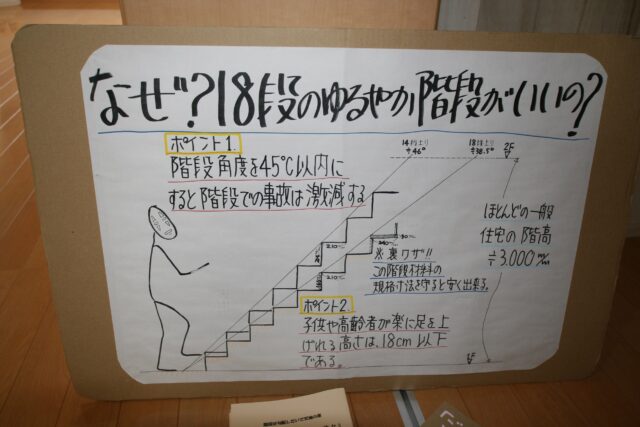 なぜ?18段のゆるやか階段がいいの?
ポイント1.
階段角度を45℃以内に
すると階段での事故は激減する
14段上り
≒46°
18段上り
≒38.5°
2F
ほとんどの一般
住宅の階高
≒3.000m/m
210
30
240
210
※裏ワザ!!
この階段材料の
規格寸法を守ると安く出来る。
ポイント2.
子供や高齢者が楽に足を上
げれる高さは、18cm以下
である。
1F